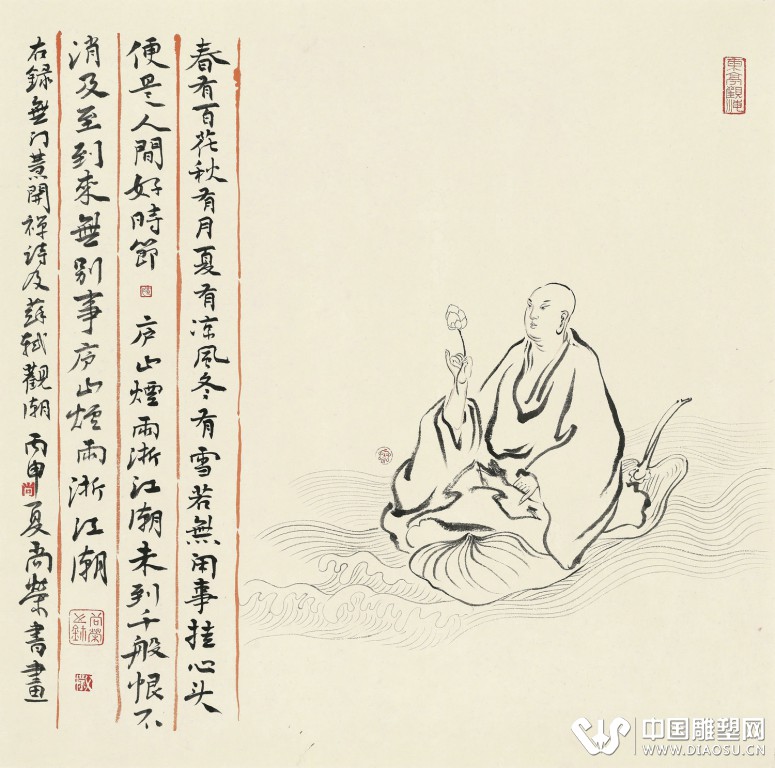 春有百花秋有月夏有凉風冬有雪若無闲事挂心头
便是人間好時節 庐山煙雨浙江潮未到千般恨不
消及至到來無别事庐山煙雨浙江潮
右録無门慧開禅詩及蘇轼觀潮 丙申夏尚榮書畫
東亭觀海
尚
中国雕塑网
WWW.DIAOSU.CN